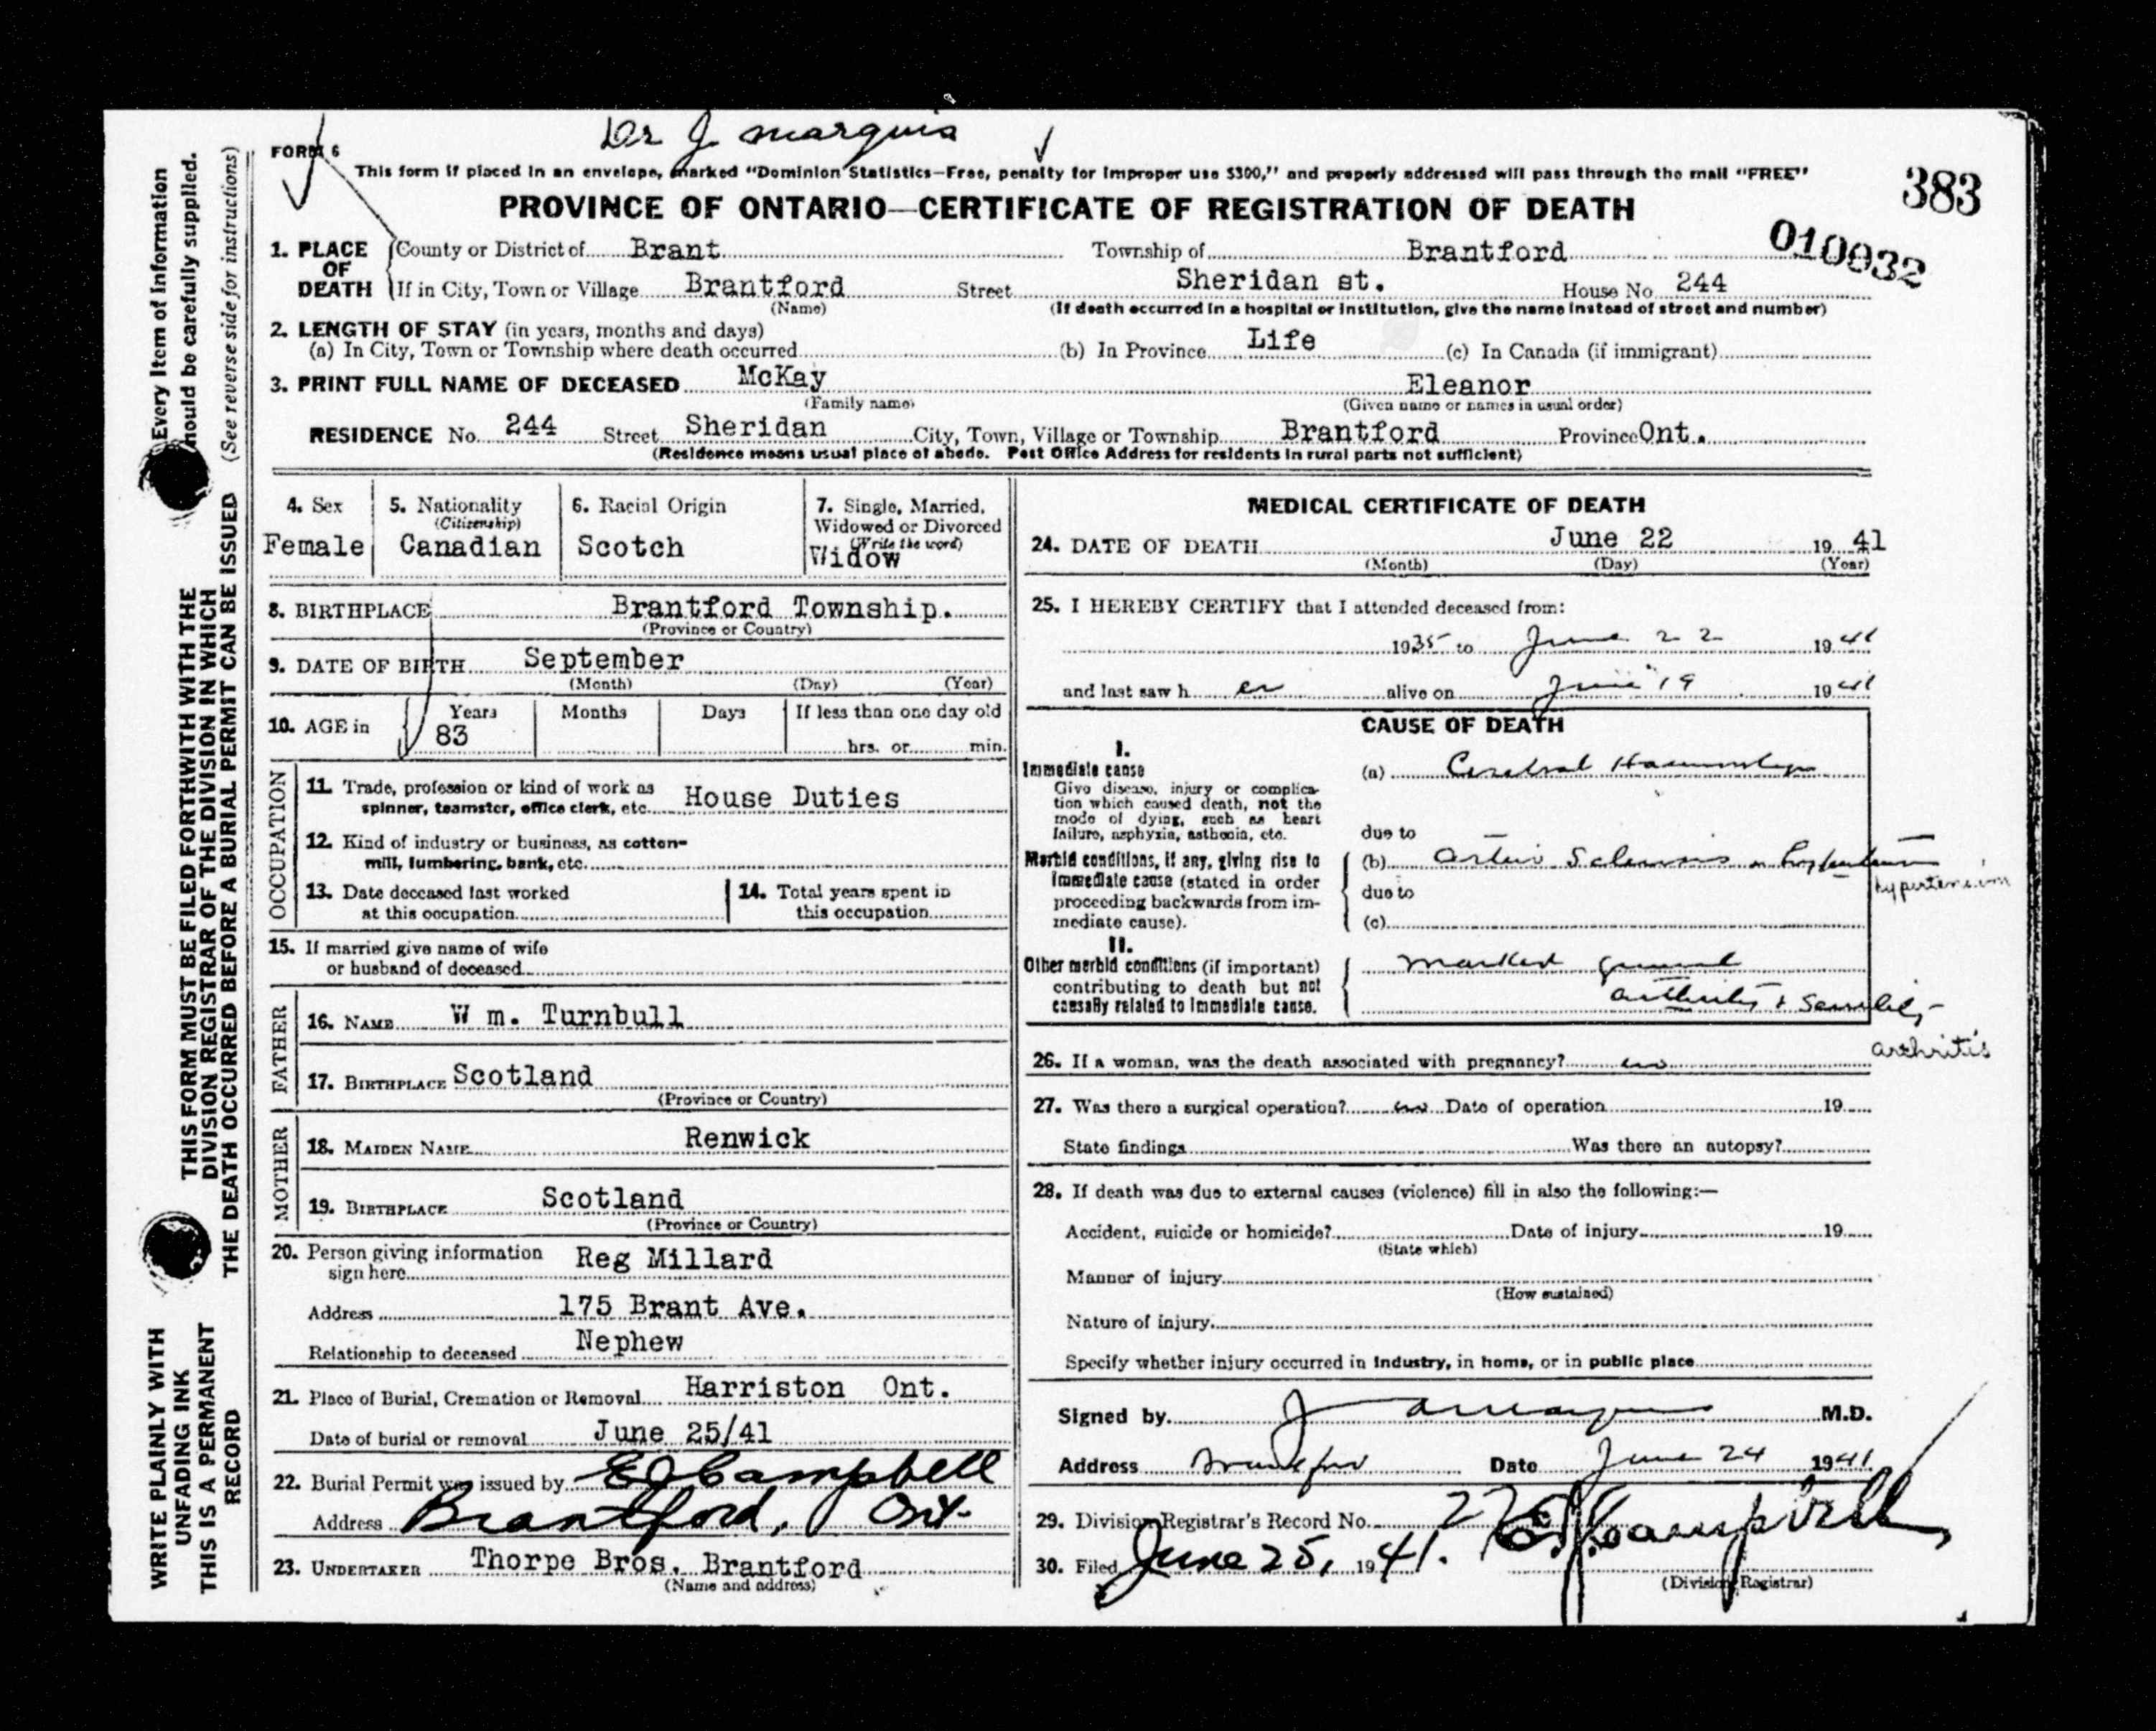 Dr J. Marquis
FORM 6
This form if placed in an envelope, marked "Dominion Statistics—Free, penalty for improper use $300," and properly addressed will pass through the mail "FREE"
383
PROVINCE OF ONTARIO—CERTIFICATE OF REGISTRATION OF DEATH
010032
1. PLACE OF DEATH County or District of Brant Township of Brantford
If in City, Town or Village Brantford Street Sheridan st. House No. 244
(Name) (If death occurred in a hospital or institution, give the name instead of street and number)
2. LENGTH OF STAY (in years, months and days)
(a) In City, Town or Township where death occurred (b) In Province Life (c) In Canada (if immigrant)
3. PRINT FULL NAME OF DECEASED McKay Eleanor
(Family name) (Given name or names in usual order)
RESIDENCE No. 244 Street Sheridan City, Town, Village or Township Brantford Province Ont.
(Residence means usual place of abode. Post Office Address for residents in rural parts not sufficient)
4. Sex
Female
5. Nationality
(Citizenship)
Canadian
6. Racial Origin
Scotch
7. Single, Married,
Widowed or Divorced
(Write the word)
Widow
8. BIRTHPLACE Brantford Township.
(Province or Country)
9. DATE OF BIRTH September
(Month) (Day) (Year)
10. AGE in Years Months Days If less than one day old
83 hrs. or min.
OCCUPATION
11. Trade, profession or kind of work as
spinner, teamster, office clerk, etc. House Duties
12. Kind of industry or business, as cotton-
mill, lumbering, bank, etc.
13. Date deceased last worked
at this occupation
14. Total years spent in
this occupation
15. If married give name of wife
or husband of deceased
FATHER
16. NAME W m. Turnbull
17. BIRTHPLACE Scotland
(Province or Country)
MOTHER
18. MAIDEN NAME Renwick
19. BIRTHPLACE Scotland
(Province or Country)
20. Person giving information
sign here Reg Millard
Address 175 Brant Ave.
Relationship to deceased Nephew
21. Place of Burial, Cremation or Removal Harriston Ont.
Date of burial or removal June 25/41
22. Burial Permit was issued by E J Campbell
Address Brantford, Ont.
23. UNDERTAKER Thorpe Bros. Brantford
(Name and address)
MEDICAL CERTIFICATE OF DEATH
24. DATE OF DEATH June 22 19 41
(Month) (Day) (Year)
25. I HEREBY CERTIFY that I attended deceased from:
1935 to June 22 1941
and last saw h er alive on June 19 1941
CAUSE OF DEATH
I.
Immediate cause
Give disease, injury or complica-
tion which caused death, not the
mode of dying, such as heart
failure, asphyxia, asthenia, etc.
(a) Cerebral Haemorrhage
due to
Morbid conditions, if any, giving rise to
immediate cause (stated in order
proceeding backwards from im-
mediate cause).
(b) Arterio Sclerosis Hypertension
hypertension
due to
(c)
II.
Other morbid conditions (if important)
contributing to death but not
causally related to immediate cause.
marked general
arthritis + Senility
arthritis
26. If a woman, was the death associated with pregnancy? no
27. Was there a surgical operation? no Date of operation 19
State findings Was there an autopsy?
28. If death was due to external causes (violence) fill in also the following:—
Accident, suicide or homicide? Date of injury 19
(State which)
Manner of injury
(How sustained)
Nature of injury
Specify whether injury occurred in industry, in home, or in public place
Signed by J Marquis M.D.
Address Brantford Date June 24 1941
29. Division Registrar's Record No. E J Campbell
30. Filed June 25, 1941.
(Division Registrar)
Every Item of Information
should be carefully supplied.
(See reverse side for instructions)
THIS FORM MUST BE FILED FORTHWITH WITH THE
DIVISION REGISTRAR OF THE DIVISION IN WHICH
THE DEATH OCCURRED BEFORE A BURIAL PERMIT CAN BE ISSUED
WRITE PLAINLY WITH
UNFADING INK
THIS IS A PERMANENT
RECORD